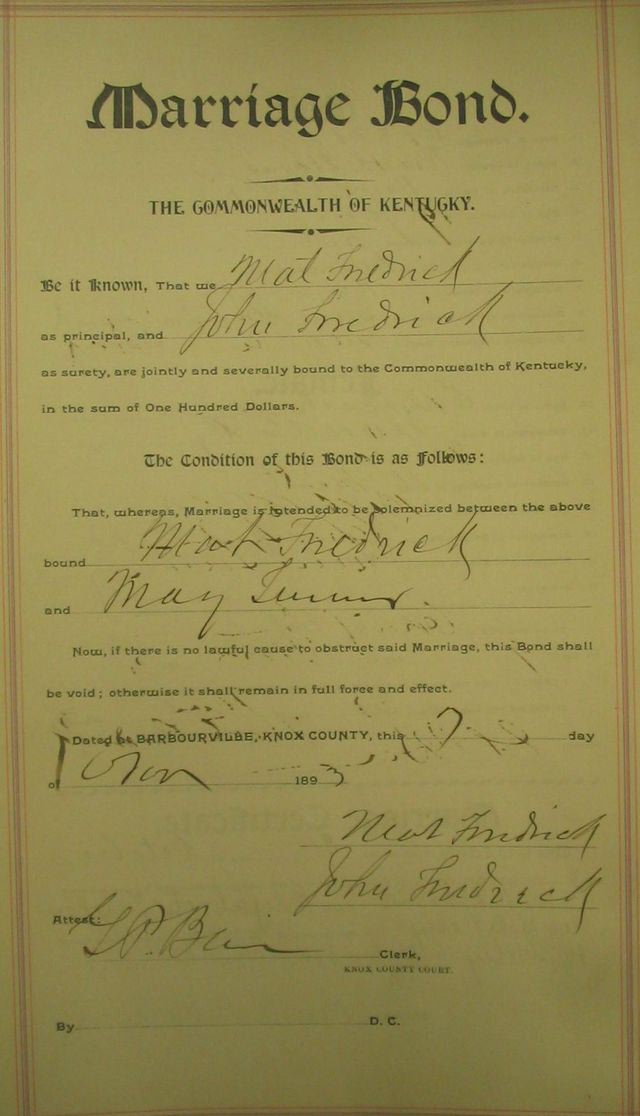 Marriage Bond.
THE COMMONWEALTH OF KENTUCKY.
Be it Known, That we Mat Fredrick
as principal, and John Fredrick
as surety, are jointly and severally bound to the Commonwealth of Kentucky,
in the sum of One Hundred Dollars.
The Condition of this Bond is as Follows:
That, whereas, Marriage is intended to be solemnized between the above
bound Mat Fredrick
and May
Now, if there is no lawful cause to obstruct said Marriage, this Bond shall
be void; otherwise it shall remain in full force and effect.
Dated at BARBOURVILLE, KNOX COUNTY, this 7 day
of Nov 1893
Mat Fredrick
John Fredrick
Attest:
Clerk,
KNOX COUNTY COURT.
By D. C.